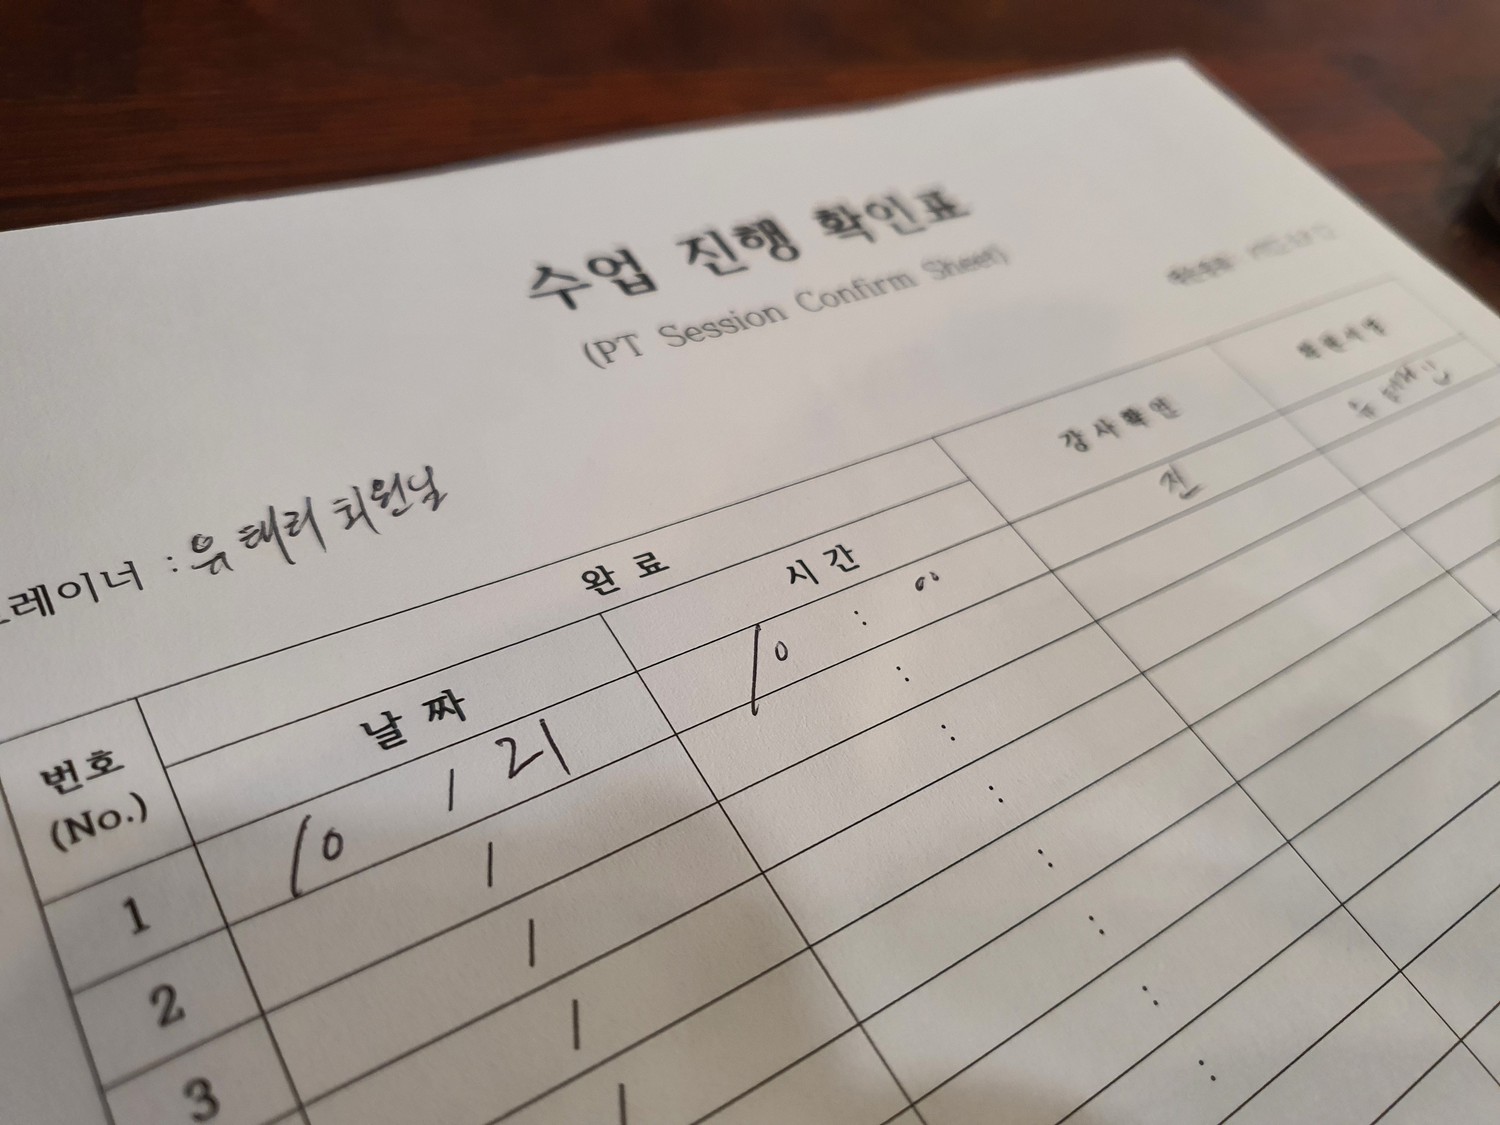 수업 진행 확인표
(PT Session Confirm Sheet)
레이너 : 유태리 회원님
번호
(No.)
완 료
강사확인
회원서명
날 짜
시 간
1
10 / 21
10 : 00
진
2
/
:
3
/
:
/
:
/
:
:
:
: